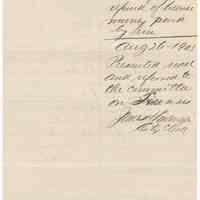 refund of license
money paid
by him
Aug 26 - 190
Presented read
and referred to
the committee
on Finance
City Clerk